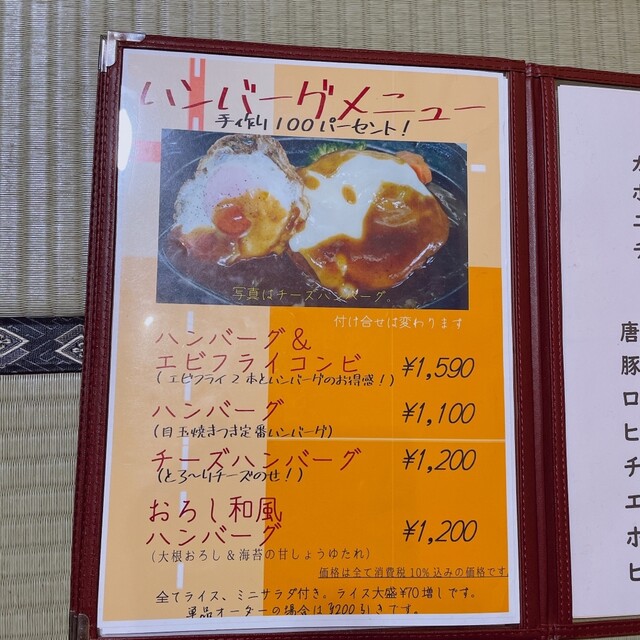 ハンバーグメニュー
手作り100パーセント!
写真はチーズハンバーグ。
付け合せは変わります
ハンバーグ&
エビフライコンビ ¥1,590
(エビフライ2本とハンバーグのお得感!)
ハンバーグ ¥1,100
(目玉焼きつき定番ハンバーグ)
チーズハンバーグ ¥1,200
(とろ〜りチーズのせ!)
おろし和風
ハンバーグ ¥1,200
(大根おろし&海苔の甘しょうゆたれ)
価格は全て消費税10%込みの価格です。
全てライス、ミニサラダ付き。ライス大盛¥70増しです。
単品オーダーの場合は¥200引きです。
唐
豚
ロ
ヒ
チ
エ
ホ
ピ